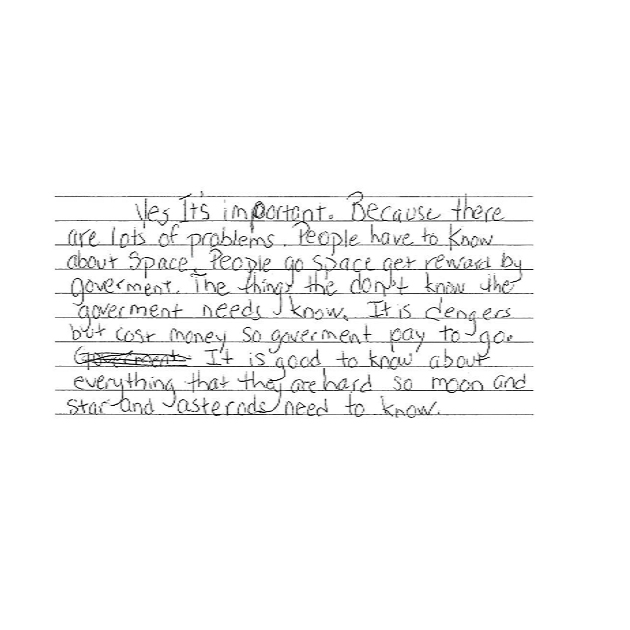 Yes It's important. Because there
are lots of problems. People have to know
about space. People go space get reward by
goverment. The things the don't know the
goverment needs know. It is dengers
but cost money so goverment pay to go.
It is good to know about
everything that they are hard so moon and
star and asterods need to know.